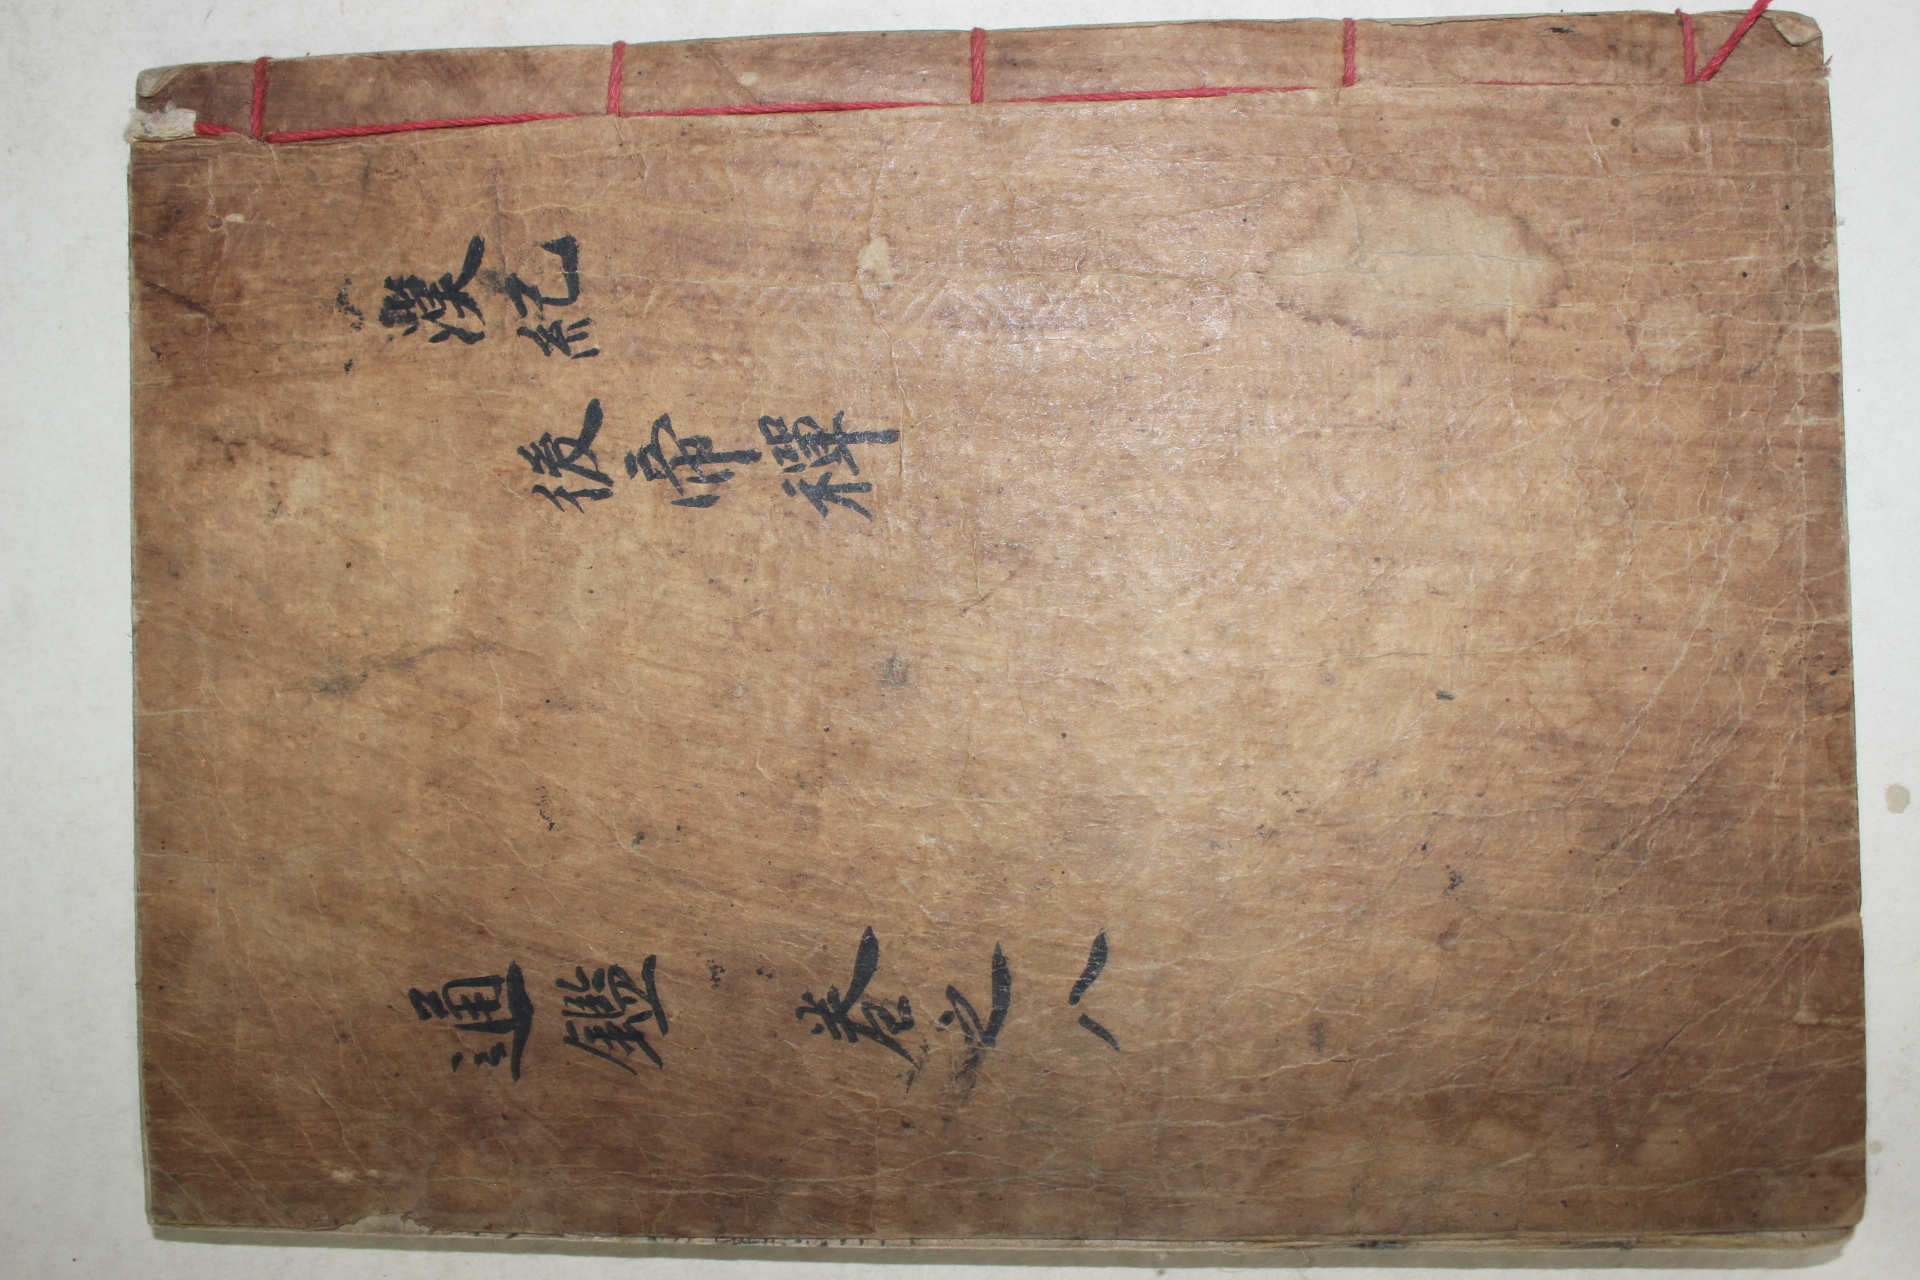 漢紀
後帝禪
通鑑 卷之八